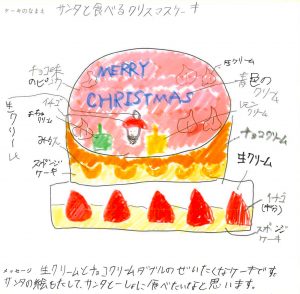 ケーキのなまえ サンタと食べるクリスマスケーキ
生クリーム
チョコ味
のピック
青色の
クリーム
MERRY
CHRISTMAS
イチゴ
レモン
クリーム
生クリーム
みかん
チョコクリーム
スポンジ
ケーキ
生クリーム
イチゴ
(半分)
スポンジ
ケーキ
メッセージ 生クリームとチョコクリームダブルのぜいたくなケーキです。
サンタの絵もたして、サンタといっしょに食べたいなと思います。